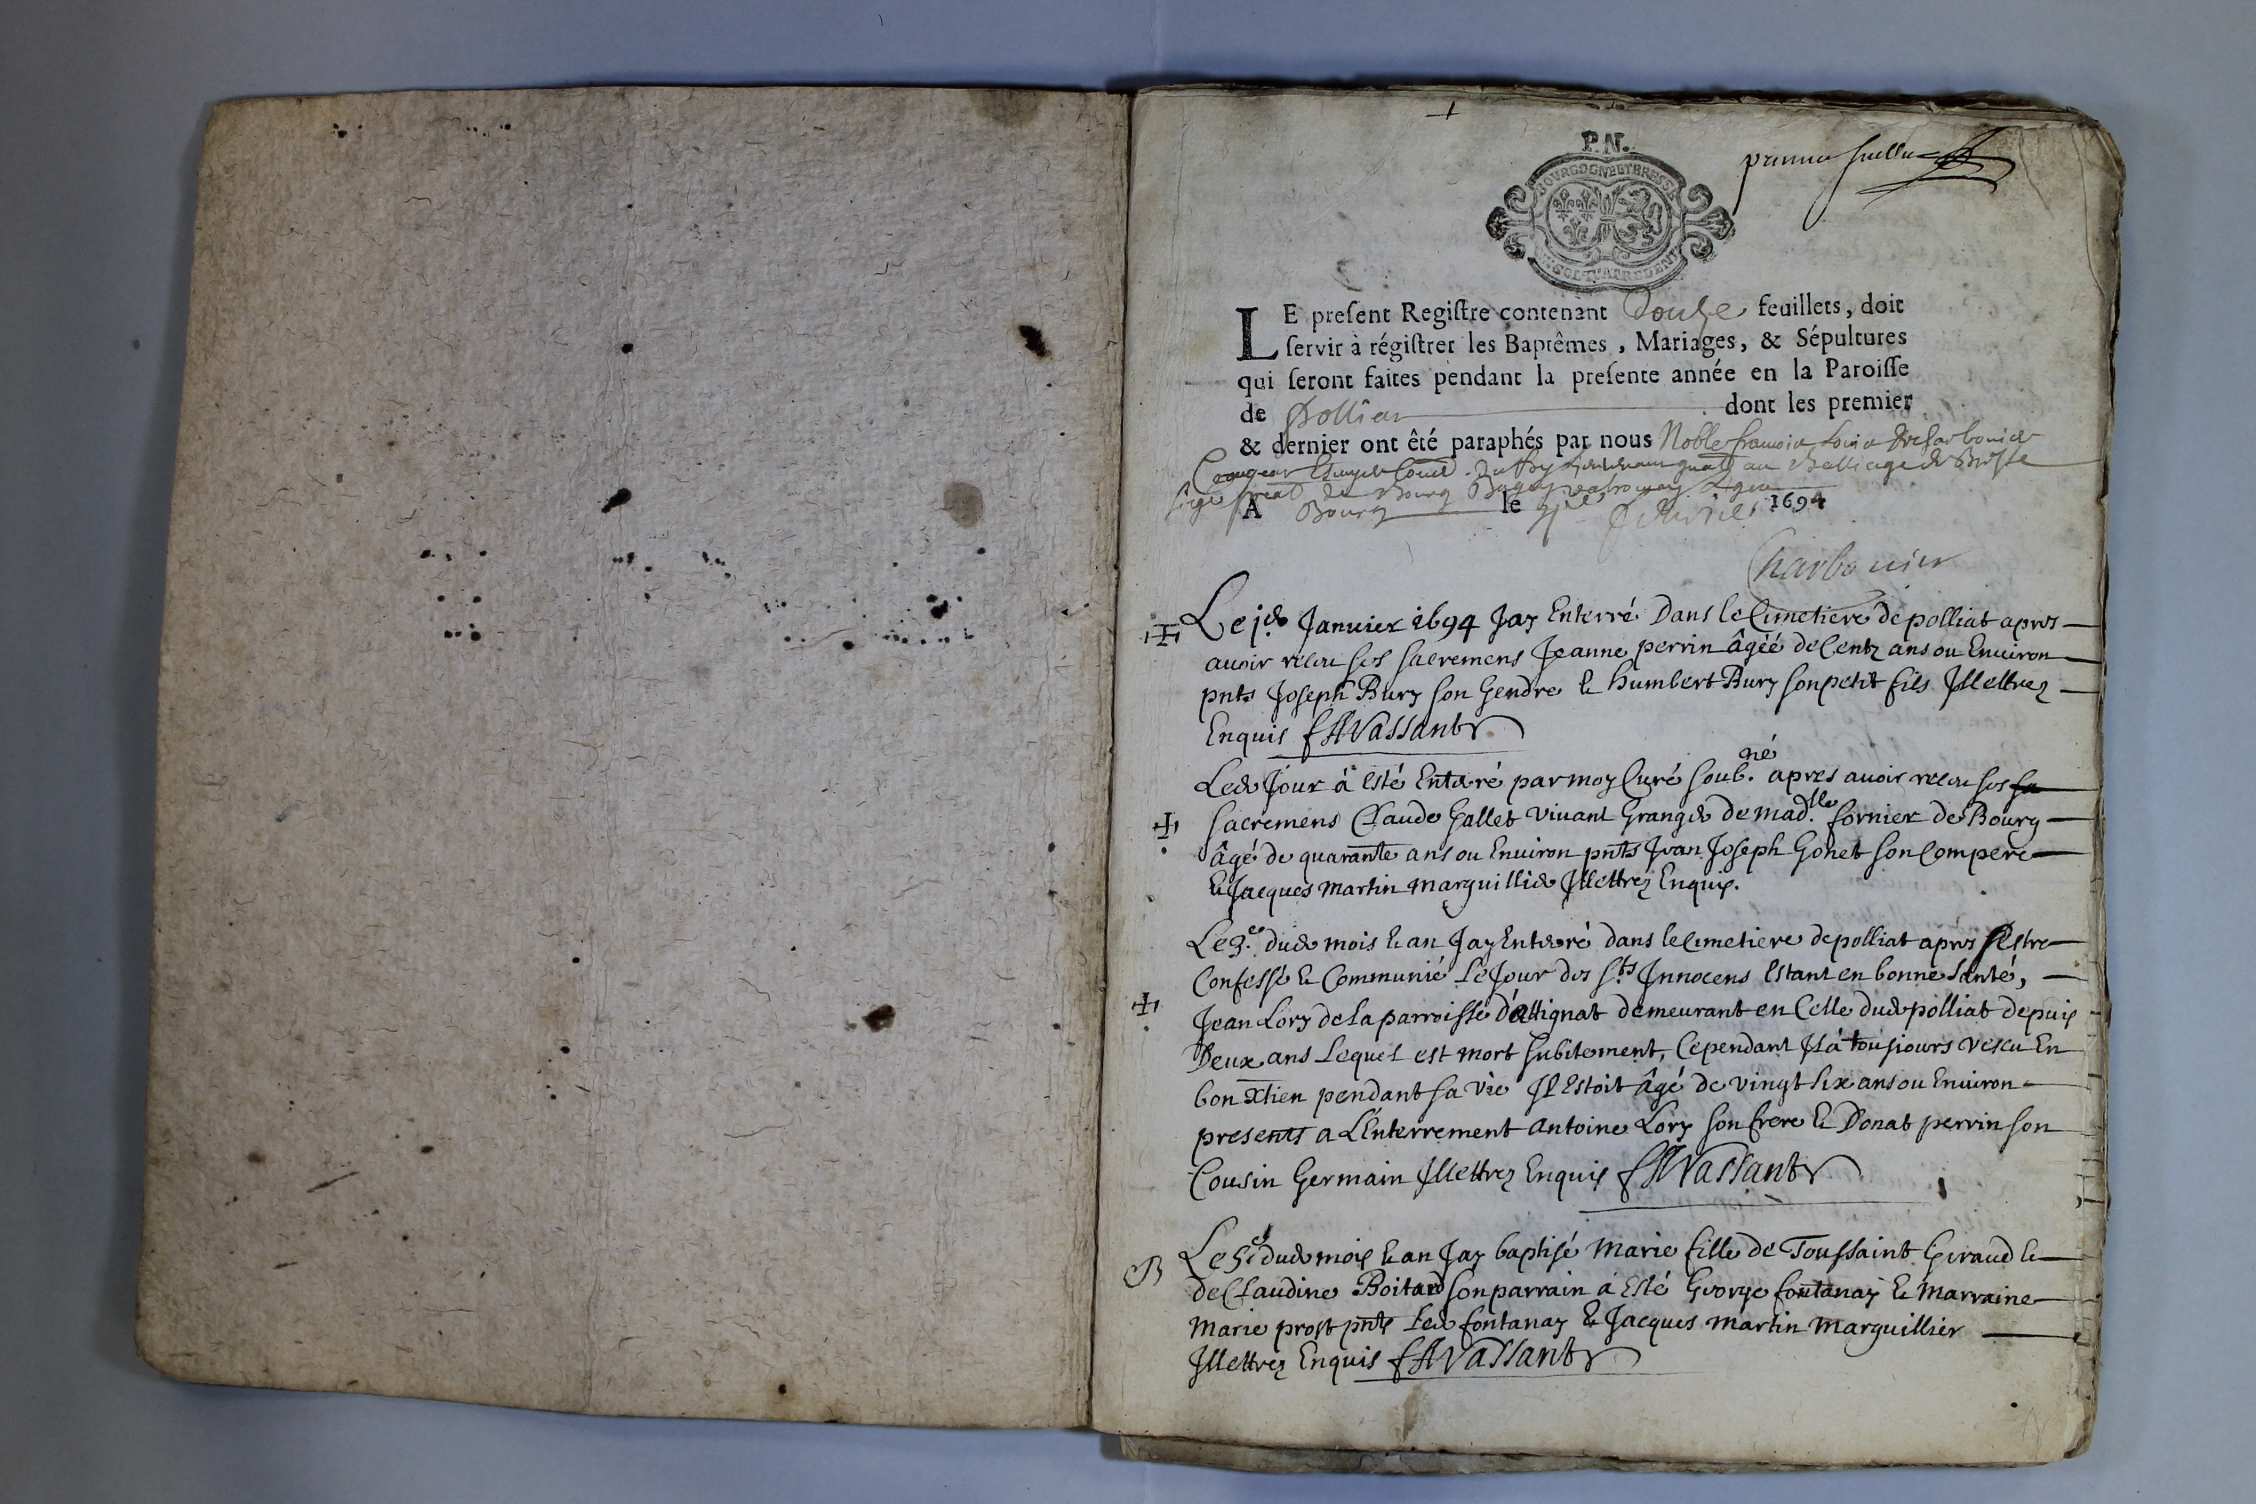 P.N.
BOURGOGNE ET BRESSE
premier feuillet
LE present Registre contenant Douze feuillets, doit
servir à régistrer les Baptêmes, Mariages, & Sépultures
qui seront faites pendant la presente année en la Paroisse
de Polliat dont les premier
& dernier ont êté paraphés par nous Noble francois Louis
au Balliage de Bresse
siege de Bourg
A Bourg le 1694
Charbonier
Le j.er Januier 1694 Jay Enterré Dans le Cimetiere de polliat apres
auoir receu ses sacremens Jeanne perrin âgéé de Centz ans ou Enuiron
pnts Joseph Bury son Gendre & humbert Bury son petit fils Jllettrez
Enquis FAVassant
Led Jour à esté Enterré par moy Curé soub.né apres auoir receu ses sa
sacremens Claude Gallet viuant Granger de mad.lle fornier de Bourg
âgé de quarante ans ou Enuiron pnts Jean Joseph Gonet son Compere
& Jacques martin marguillier Jllettrez Enquis.
Le 3.e dud mois & an Jay Enterré dans le Cimetiere de polliat apres sestre
Confessé & Communié Le Jour des S.ts Jnnocens Estant en bonne santé,
Jean Lory de la parroisse d'attignat demeurant en Celle dud polliat depuis
Deux ans Lequel est mort subitement, Cependant Jl à toujiours vescu En
bon xtien pendant sa vie Jl Estoit âgé de vingt six ans ou Enuiron
presents a L'Enterrement antoine Lory son frere & Donat perrin son
Cousin Germain Jllettrez Enquis FAVassant
B Le 5.e dud mois & an Jay baptisé marie fille de Toussaint Giraud &
de Claudine Boitard son parrain a Esté George fontanay & marraine
marie prost pnts Led fontanay & Jacques martin marguillier
Jllettrez Enquis FAVassant